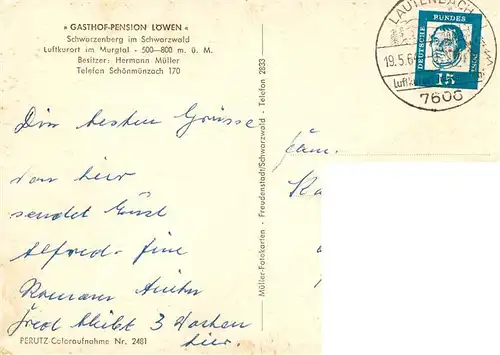 * GASTHOF-PENSION LÖWEN *
Schwarzenberg im Schwarzwald
Luftkurort im Murgtal - 500-800 m. ü. M.
Besitzer: Hermann Müller
Telefon Schönmünzach 170
LAUTENBACH
19.5.6
Luftkurort
7606
DEUTSCHE BUNDESPOST
15
Die besten Grüsse
von hier
sendet
Alfred
bleibt 3 Wochen
hier.
Fam.
Müller-Fotokarten - Freudenstadt/Schwarzwald - Telefon 2833
PERUTZ-Coloraufnahme Nr. 2481